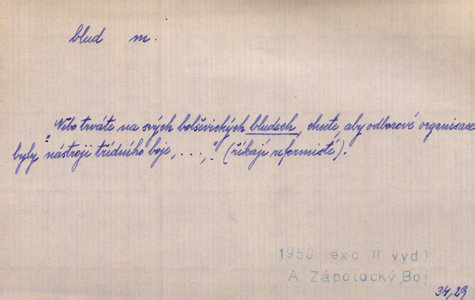 blud m.
"Nebo trváte na svých bolševických bludech, chcete, aby odborové organisace
byly nástroji třídního boje, . . . ," (říkají reformisté).
1950 (exc II vyd)
A. Zápotocký, Boj
34,29